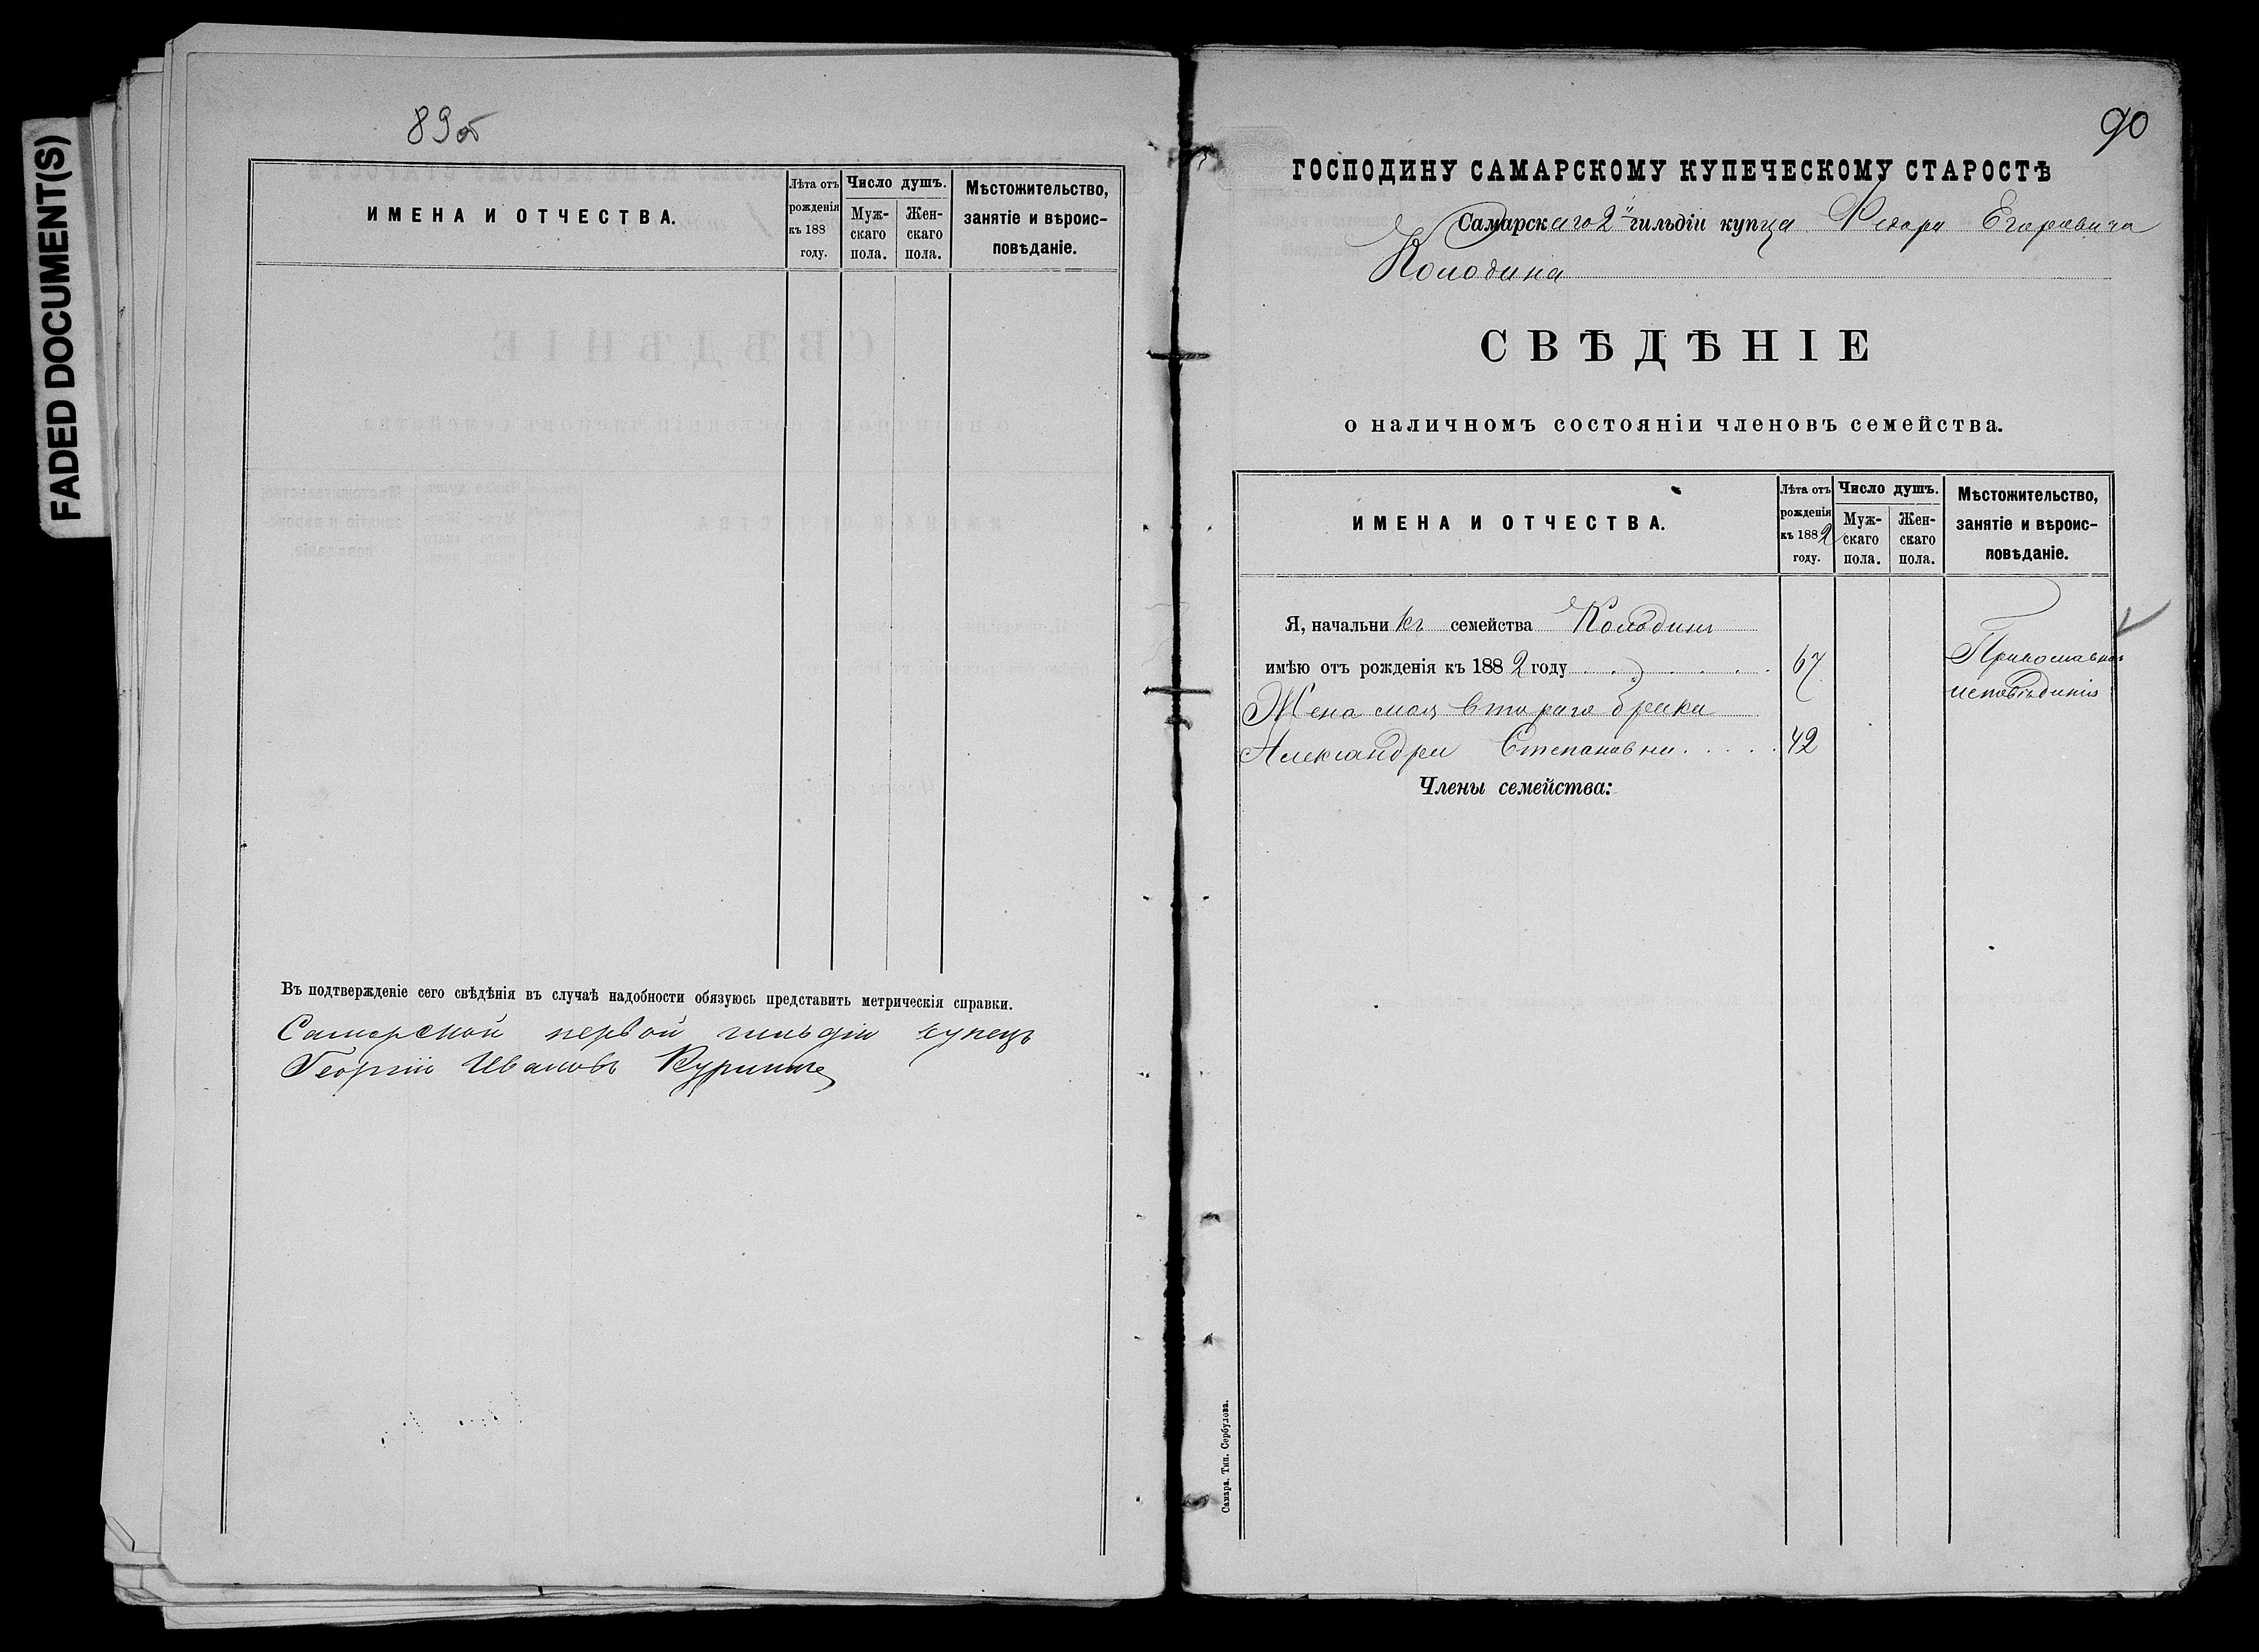 FADED DOCUMENT(S)
89об
ИМЕНА И ОТЧЕСТВА.
Лѣта отъ рожденія къ 188 году.
Число душъ.
Мужскаго пола.
Женскаго пола.
Мѣстожительство, занятіе и вѣроисповѣданіе.
Въ подтвержденіе сего свѣдѣнія въ случаѣ надобности обязуюсь представить метрическія справки.
Самарской первой гильдіи купецъ
Георгій Ивановъ
90
ГОСПОДИНУ САМАРСКОМУ КУПЕЧЕСКОМУ СТАРОСТѢ
Самарскаго 2й гильдіи купца Егоровича
Колодина
СВѢДѢНІЕ
о наличномъ состояніи членовъ семейства.
ИМЕНА И ОТЧЕСТВА.
Лѣта отъ рожденія къ 1882 году.
Число душъ.
Мужскаго пола.
Женскаго пола.
Мѣстожительство, занятіе и вѣроисповѣданіе.
Я, начальникъ семейства Колодинъ
имѣю отъ рожденія къ 1882 году 67
Православнаго
исповѣданія
Жена моя втораго брака
Александра Степановна 42
Члены семейства:
Самара. Тип. Сербулова.